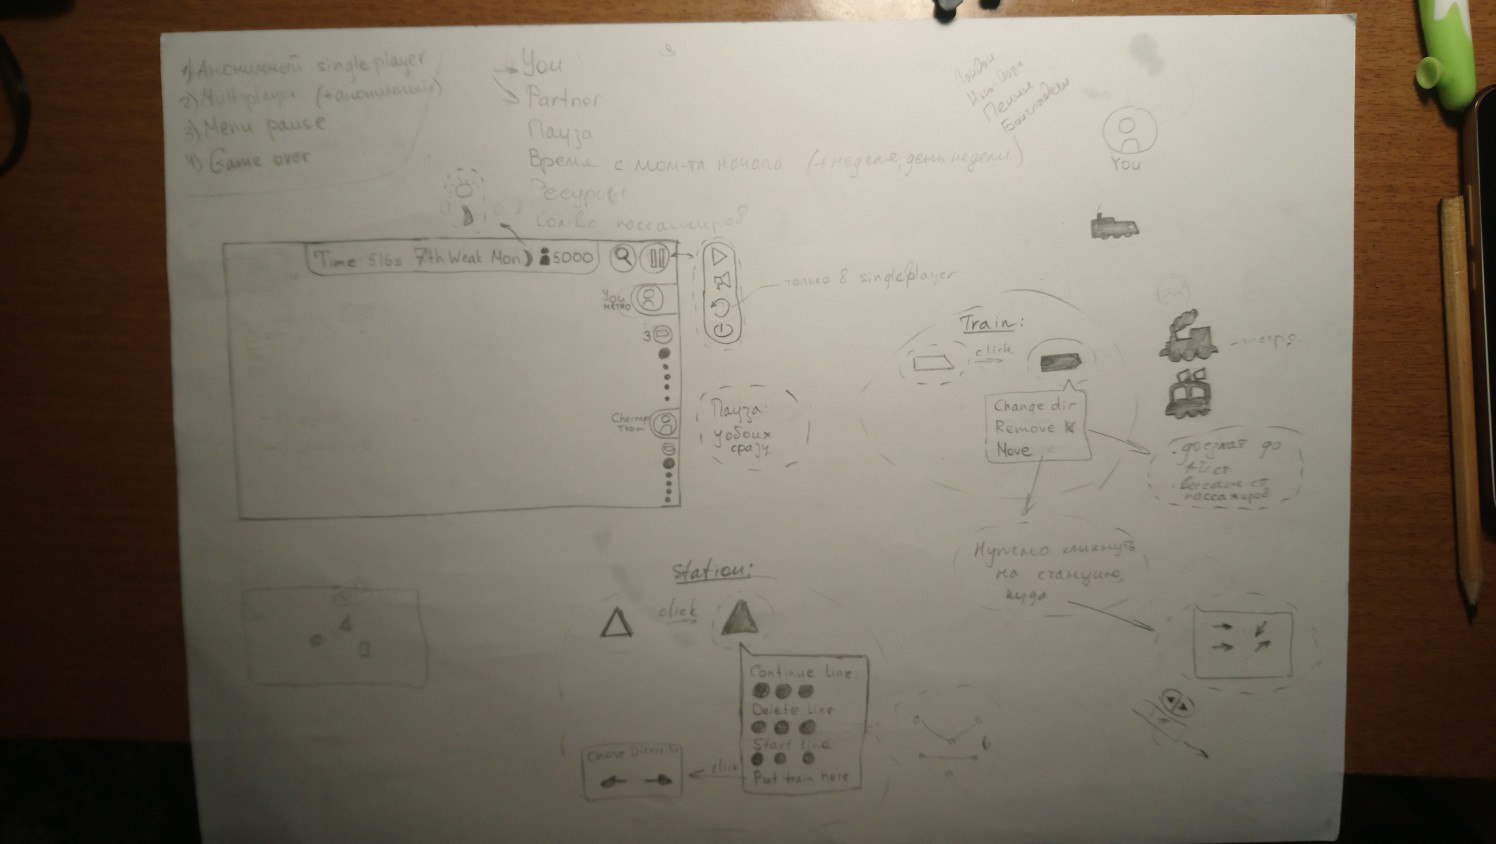 1) Анонимный singleplayer
2) Multiplayer (+анонимный)
3) Menu pause
4) Game over
You
Partner
Пауза
Время с мом-та начала (+неделя, день недели)
Ресурсы
Кол-во пассажиров
Лондон
Нью-Йорк
Пекин
You
Time 516s 7th Weak Mon 5000
You
METRO
3
Tram
только в singleplayer
Пауза:
у обоих
сразу
Train:
click
Change dir
Remove
Move
- метро
доезжает до
пассажиров
Нужно кликнуть
на станцию,
куда
Station:
click
Continue line:
Delete line
Start line
Put train here
click